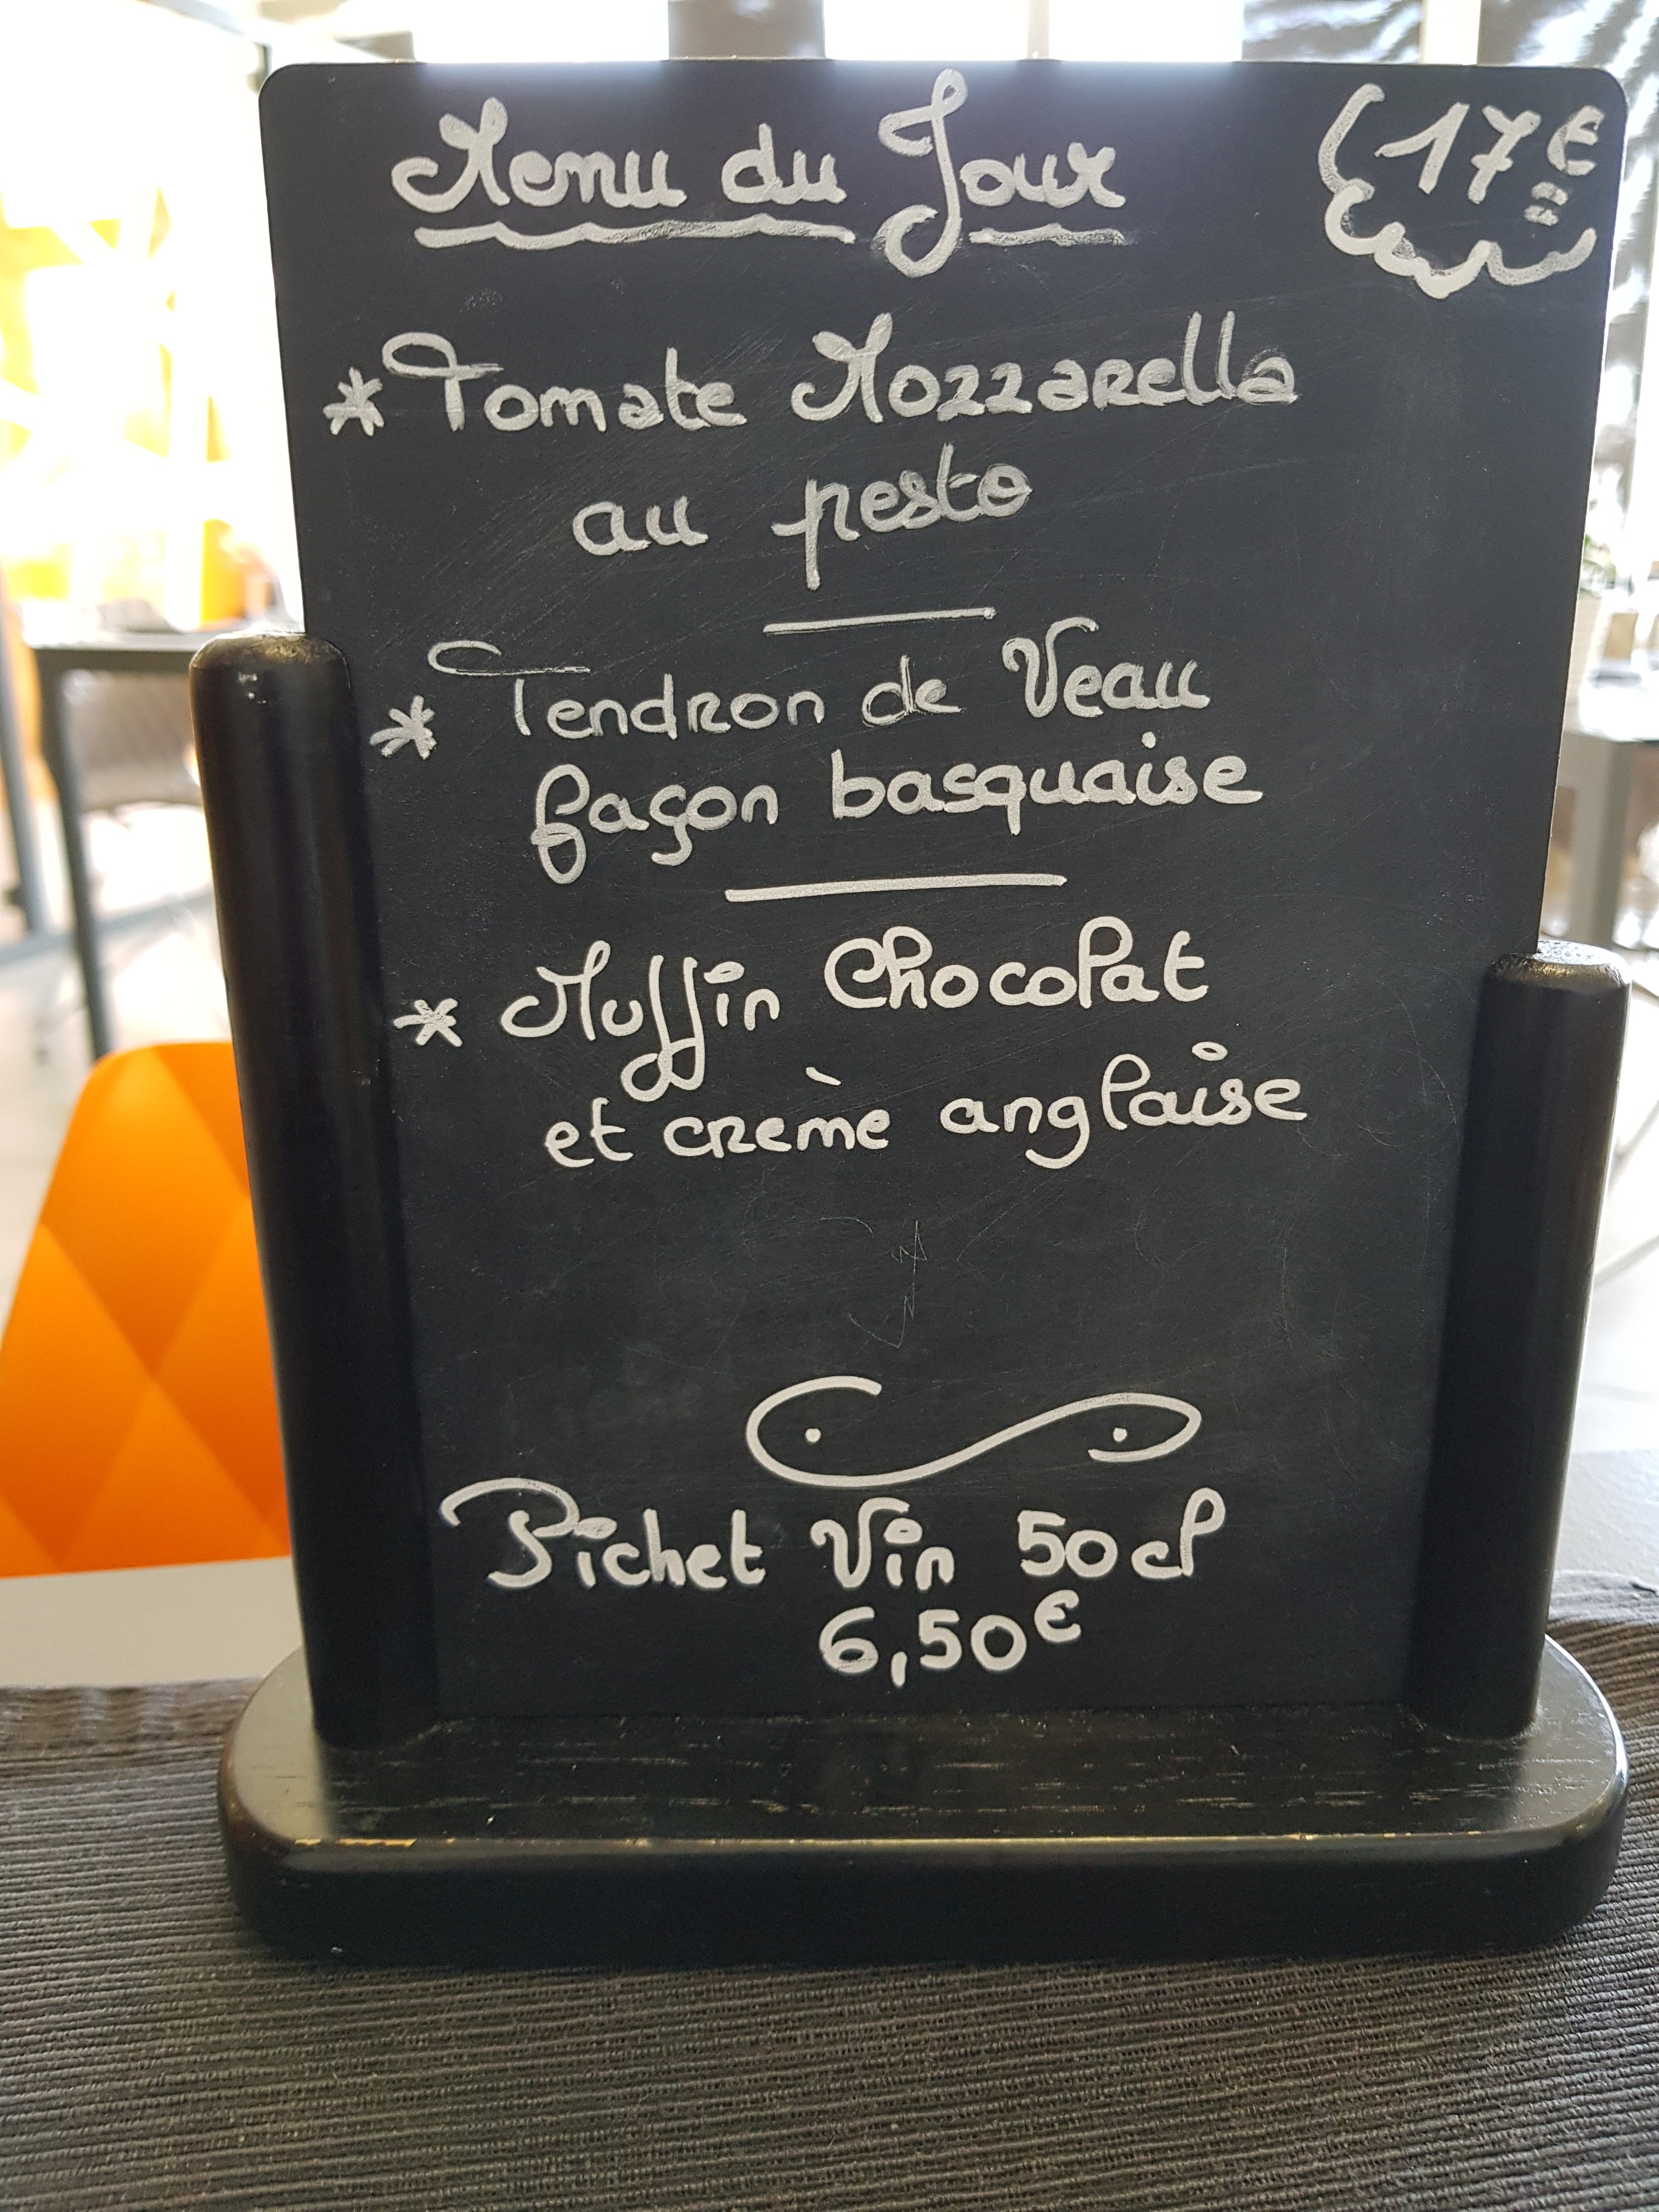 Menu du Jour 17€
* Tomate Mozzarella
au pesto
* Tendron de Veau
façon basquaise
* Muffin Chocolat
et crème anglaise
Pichet Vin 50cl
6,50€